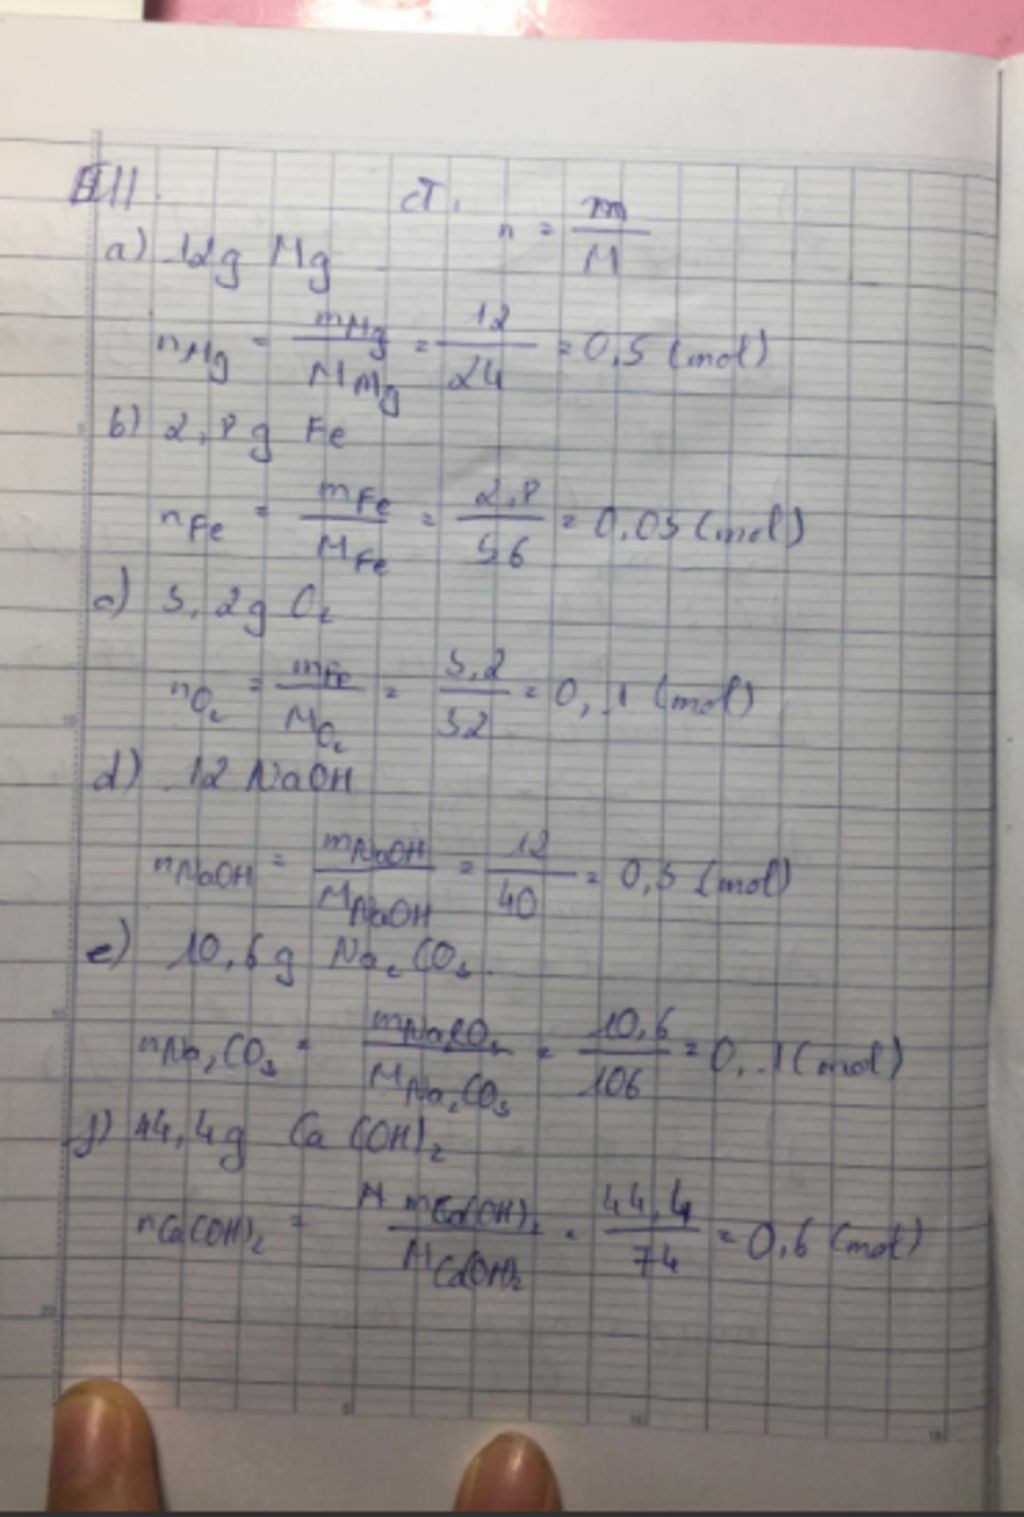 III. CT: n = m/M
a) 12g Mg
nMg = mMg/MMg = 12/24 = 0,5 (mol)
b) 2,8g Fe
nFe = mFe/MFe = 2,8/56 = 0,05 (mol)
c) 3,2g O₂
nO₂ = mFe/MO₂ = 3,2/32 = 0,1 (mol)
d) 12 NaOH
nNaOH = mNaOH/MNaOH = 12/40 = 0,3 (mol)
e) 10,6g Na₂CO₃
nNa₂CO₃ = mNa₂CO₃/MNa₂CO₃ = 10,6/106 = 0,1 (mol)
f) 44,4g Ca(OH)₂
nCa(OH)₂ = mCa(OH)₂/MCa(OH)₂ = 44,4/74 = 0,6 (mol)